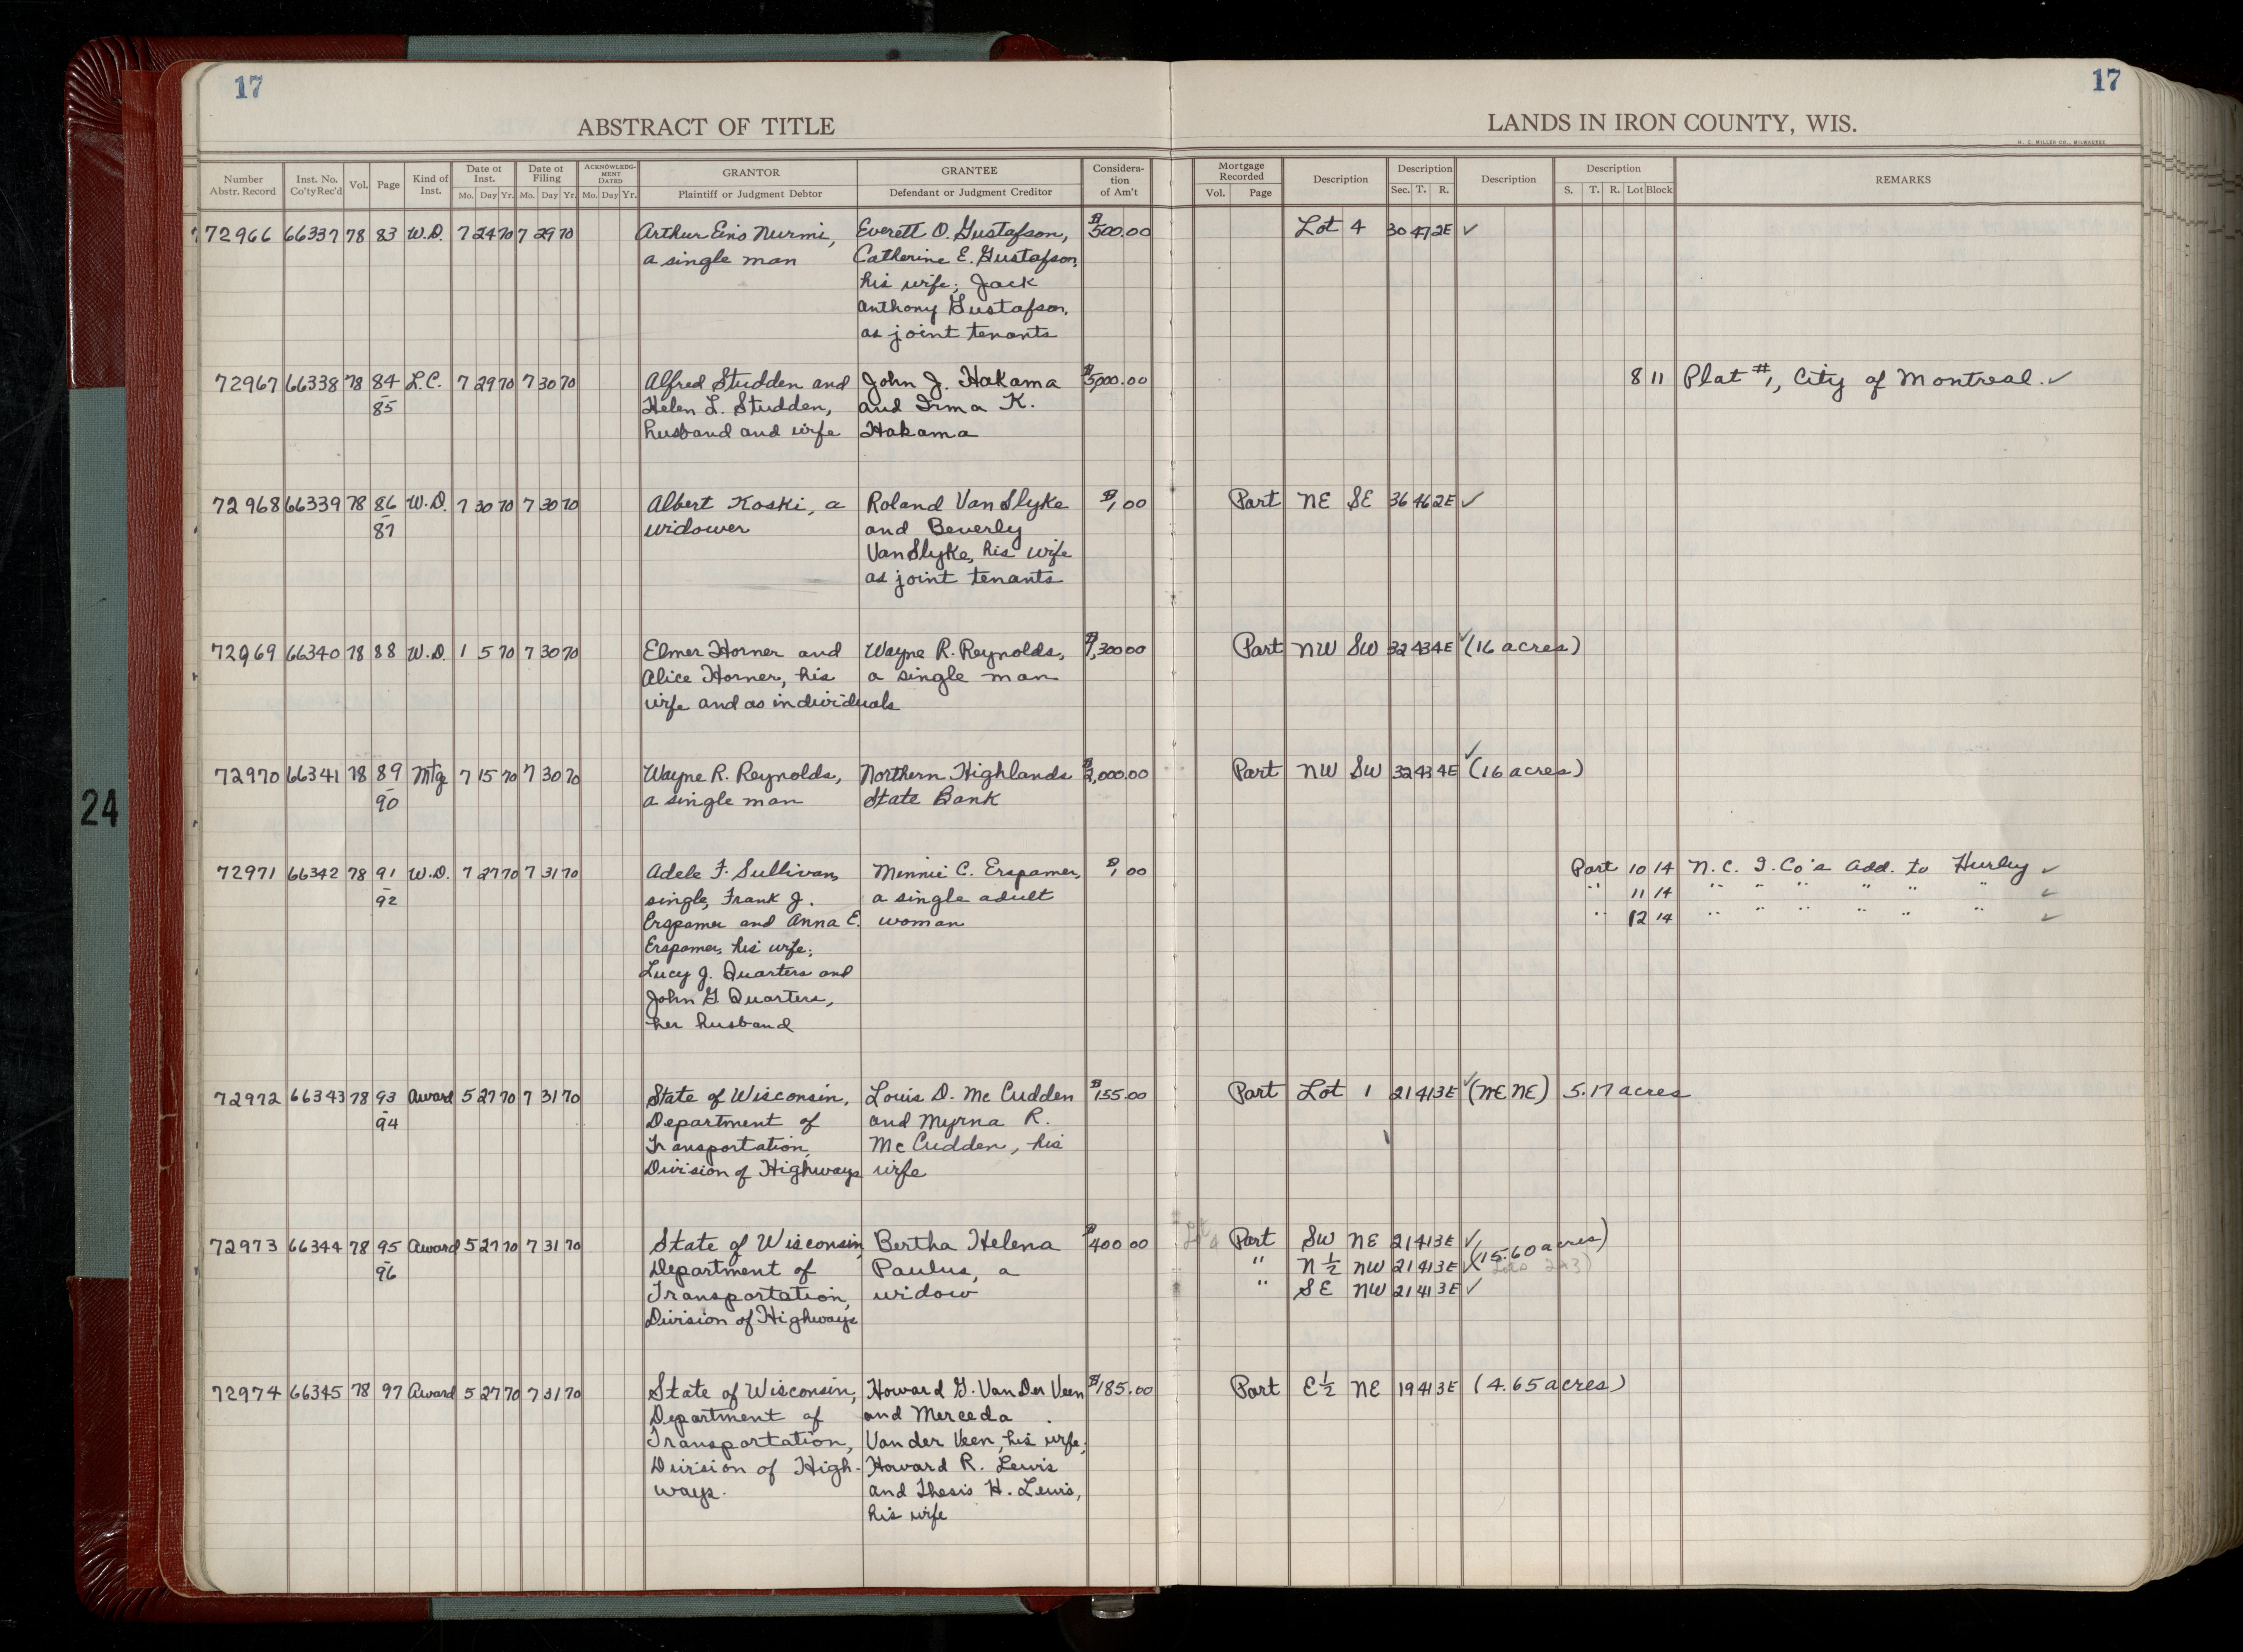 17
ABSTRACT OF TITLE
Number Abstr. Record Inst. No. Co'ty Rec'd Vol. Page Kind of Inst. Date of Inst. Mo. Day Yr. Date of Filing Mo. Day Yr. ACKNOWLEDG-MENT DATED Mo. Day Yr. GRANTOR Plaintiff or Judgment Debtor GRANTEE Defendant or Judgment Creditor Considera-tion of Am't
17
LANDS IN IRON COUNTY, WIS.
H. C. MILLER CO., MILWAUKEE
Mortgage Recorded Vol. Page Description Description Sec. T. R. Description Description S. T. R. Lot Block REMARKS
72966 66337 78 83 W.D. 7 24 70 7 29 70 Arthur Eino Nurmi, Everett O. Gustafson, $500.00 Lot 4 30 47 2E ✓
a single man Catherine E. Gustafson,
his wife; Jack
Anthony Gustafson,
as joint tenants
72967 66338 78 84 L.C. 7 29 70 7 30 70 Alfred Studden and John J. Hakama $5,000.00 8 11 Plat #1, City of Montreal. ✓
- 85 Helen L. Studden, and Irma K.
husband and wife Hakama
72968 66339 78 86 W.D. 7 30 70 7 30 70 Albert Koski, a Roland Van Slyke $1.00 Part NE SE 36 46 2E ✓
- 87 widower and Beverly
Van Slyke, his wife
as joint tenants
72969 66340 78 88 W.D. 1 5 70 7 30 70 Elmer Horner and Wayne R. Reynolds, $1,300.00 Part NW SW 32 43 4E ✓ (16 acres)
Alice Horner, his a single man
wife and as individuals
72970 66341 78 89 Mtg 7 15 70 7 30 70 Wayne R. Reynolds, Northern Highlands $2,000.00 Part NW SW 32 43 4E ✓ (16 acres)
- 90 a single man State Bank
72971 66342 78 91 W.D. 7 27 70 7 31 70 Adele F. Sullivan, Minnie C. Erspamer, $1.00 Part 10 14 N.C. I. Co's Add. to Hurley ✓
- 92 single, Frank J. a single adult " 11 14 " " " " " " ✓
Erspamer and Anna E. woman " 12 14 " " " " " " ✓
Erspamer, his wife;
Lucy J. Quarters and
John G. Quarters,
her husband
72972 66343 78 93 Award 5 27 70 7 31 70 State of Wisconsin, Louis D. Mc Cudden $155.00 Part Lot 1 21 41 3E ✓ (NE NE) 5.17 acres
- 94 Department of and Myrna R.
Transportation, Mc Cudden, his
Division of Highways wife
72973 66344 78 95 Award 5 27 70 7 31 70 State of Wisconsin, Bertha Helena $400.00 Part SW NE 21 41 3E ✓ (15.60 acres)
- 96 Department of Paulus, a " N ½ NW 21 41 3E ✓
Transportation, widow " SE NW 21 41 3E ✓
Division of Highways
72974 66345 78 97 Award 5 27 70 7 31 70 State of Wisconsin, Howard G. Van Der Veen $185.00 Part E ½ NE 19 41 3E (4.65 acres)
Department of and Merceda
Transportation, Van der Veen, his wife;
Division of High- Howard R. Lewis
ways. and Thesis H. Lewis,
his wife
24